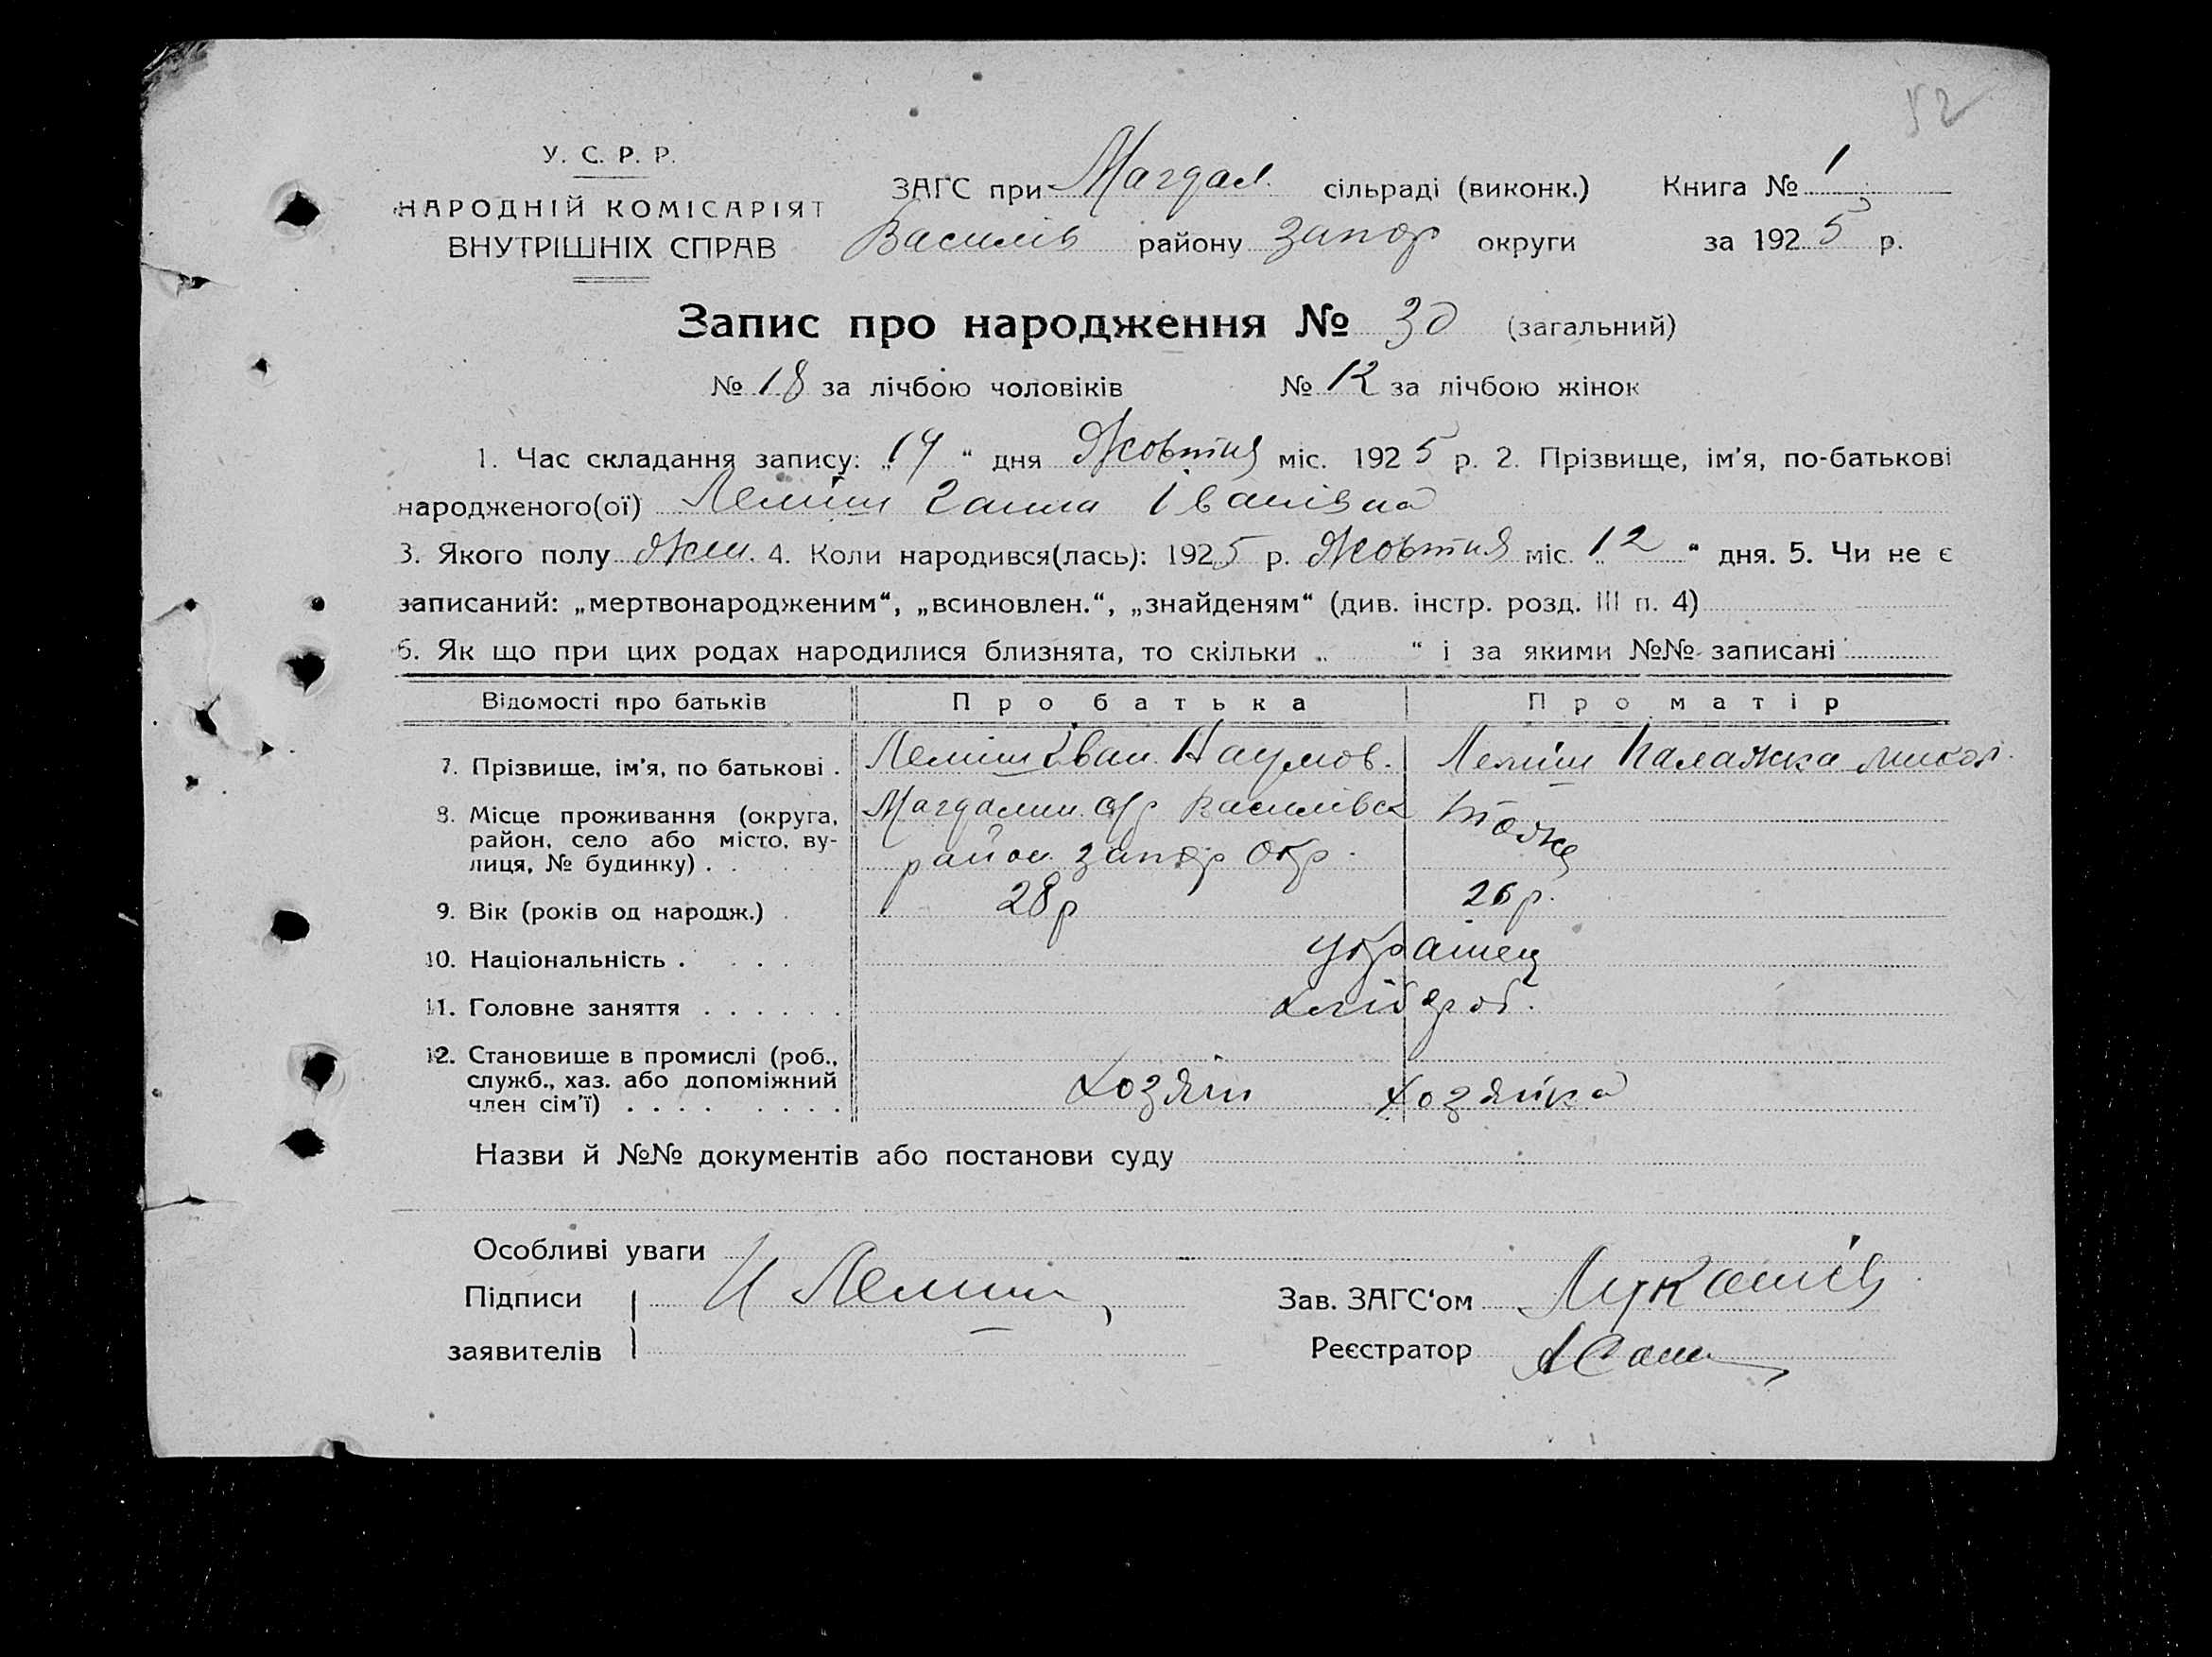 52
У. С. Р. Р.
НАРОДНІЙ КОМІСАРІЯТ
ВНУТРІШНІХ СПРАВ
ЗАГС при Магдал. сільраді (виконк.) Книга № 1
Василів району Запор округи за 1925 р.
Запис про народження № 30 (загальний)
№ 18 за лічбою чоловіків № 12 за лічбою жінок
1. Час складання запису: „19“ дня Жовтня міс. 1925 р. 2. Прізвище, ім'я, по-батькові
народженого(ої) Леміш Ганна Іванівна
3. Якого полу жен. 4. Коли народився(лась): 1925 р. Жовтня міс. „12“ дня. 5. Чи не є
записаний: „мертвонародженим“, „всиновлен.“, „знайденям“ (див. інстр. розд. III п. 4)
6. Як що при цих родах народилися близнята, то скільки „ “ і за якими №№ записані
Відомості про батьків Про батька Про матір
7. Прізвище, ім'я, по батькові . Леміш Іван Наумов. Леміш Палажка Микол.
8. Місце проживання (округа, район, село або місто, вулиця, № будинку) . . Магдалин. Василівск район Запор Окр. тоже
9. Вік (років од народж.) . 28 р 26 р.
10. Національність . . . . Украінец
11. Головне заняття . . . . . . хлібороб.
12. Становище в промислі (роб., служб., хаз. або допоміжний член сім'ї) . . . . . . . . Хозяін Хозяйка
Назви й №№ документів або постанови суду
Особливі уваги
Підписи И Лемиш Зав. ЗАГС'ом
заявителів Реєстратор